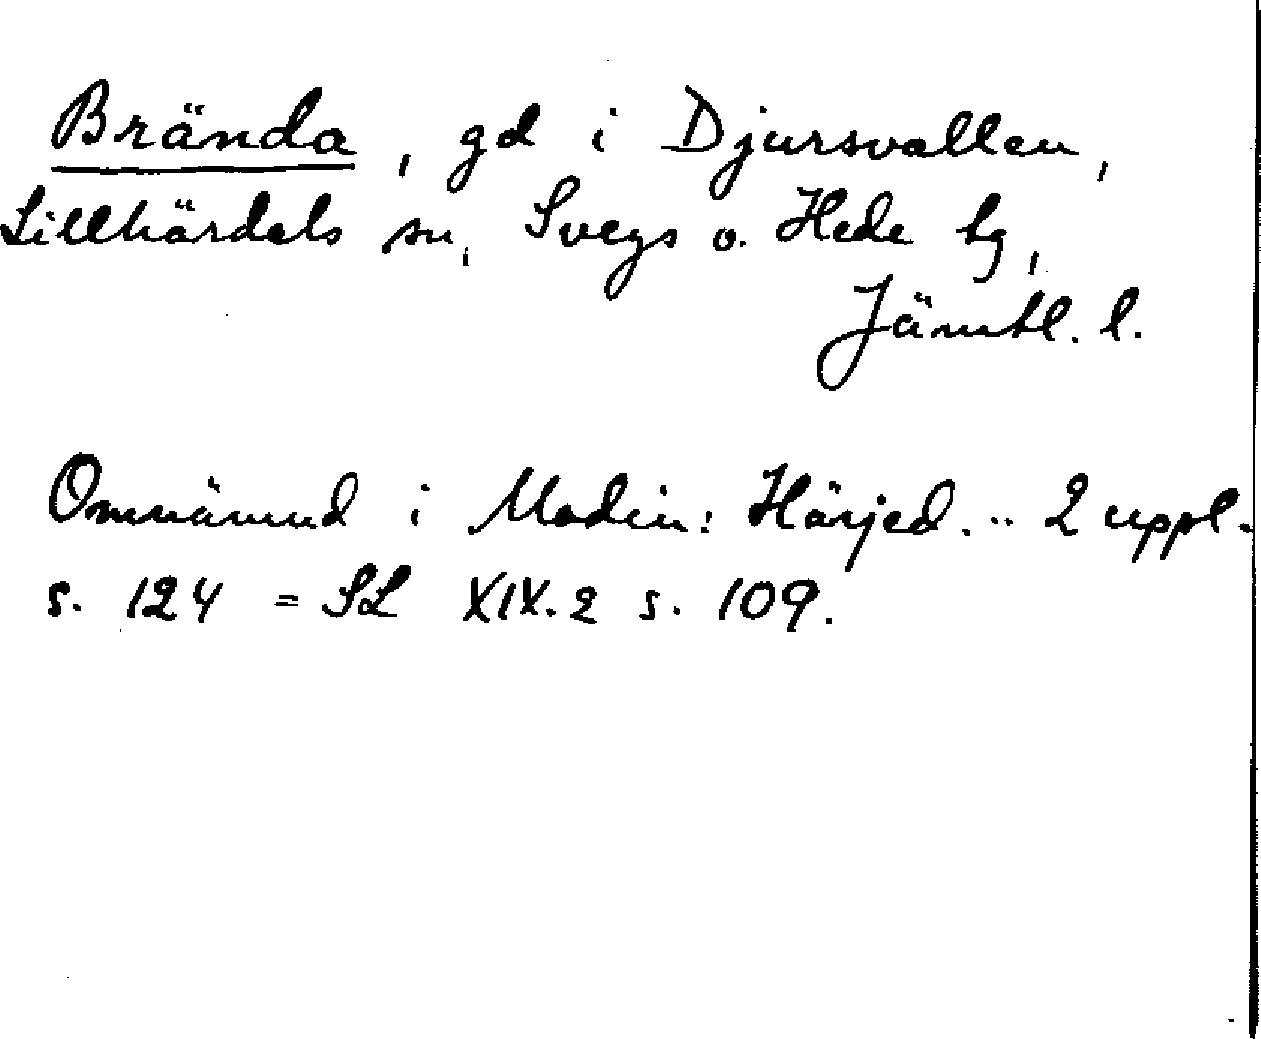 Brända, gd i Djursvallen,
Lillhärdals sn, Svegs o. Hede tg,
Jämtl. l.
Omnämnd i Modin: Härjed. .. 2 uppl.
s. 124 = SL XIX.2 s. 109.